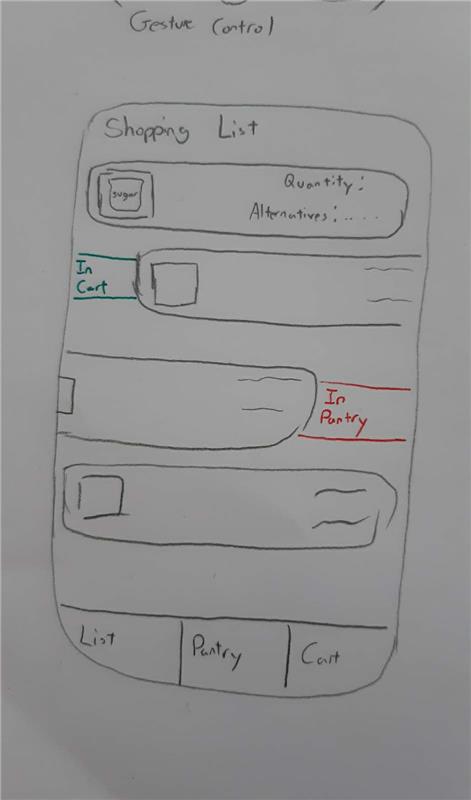 Gesture Control
Shopping List
sugar
Quantity:
Alternatives:.....
In
Cart
In
Pantry
List
Pantry
Cart